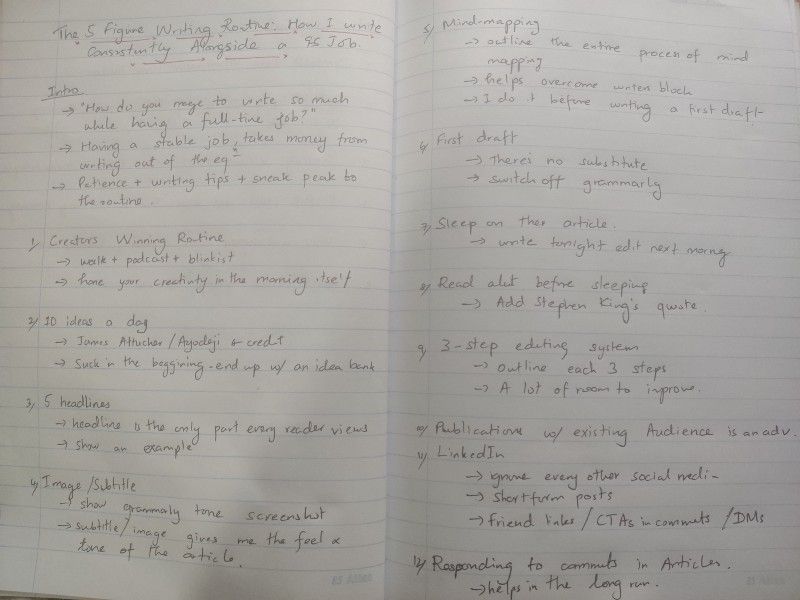 The 5 Figure Writing Routine: How I write
Consistently Alongside a 9-5 Job.
Intro
→ "How do you mage to write so much
while having a full-time job?"
→ Having a stable job, takes money from
writing out of the eqn
→ Patience + writing tips + sneak peak to
the routine.
1) Creators Winning Routine
→ walk + podcast + blinkist
→ hone your creativity in the morning itself
2) 10 ideas a day
→ James Altucher / Ayodeji credit
→ Suck in the beggining - end up w/ an idea bank
3) 5 headlines
→ headline is the only part every reader views
→ show an example
4) Image/Subtitle
→ show grammaly tone screenshot
→ subtitle/image gives me the feel &
tone of the article.
5) Mind-mapping
→ outline the entire process of mind
mapping
→ helps overcome writers block
→ I do it before writing a first draft
6) First draft
→ There's no substitute
→ switch off grammarly
7) Sleep on the article.
→ write tonight edit next morning
8) Read alot before sleeping
→ Add Stephen King's quote.
9) 3-step editing system
→ outline each 3 steps
→ A lot of room to improve.
10) Publications w/ existing Audience is an adv.
11) LinkedIn
→ ignore every other social medi-
→ Shortform posts
→ friend links / CTAs in comments / DMs
12) Responding to comments in Articles.
→ helps in the long run.